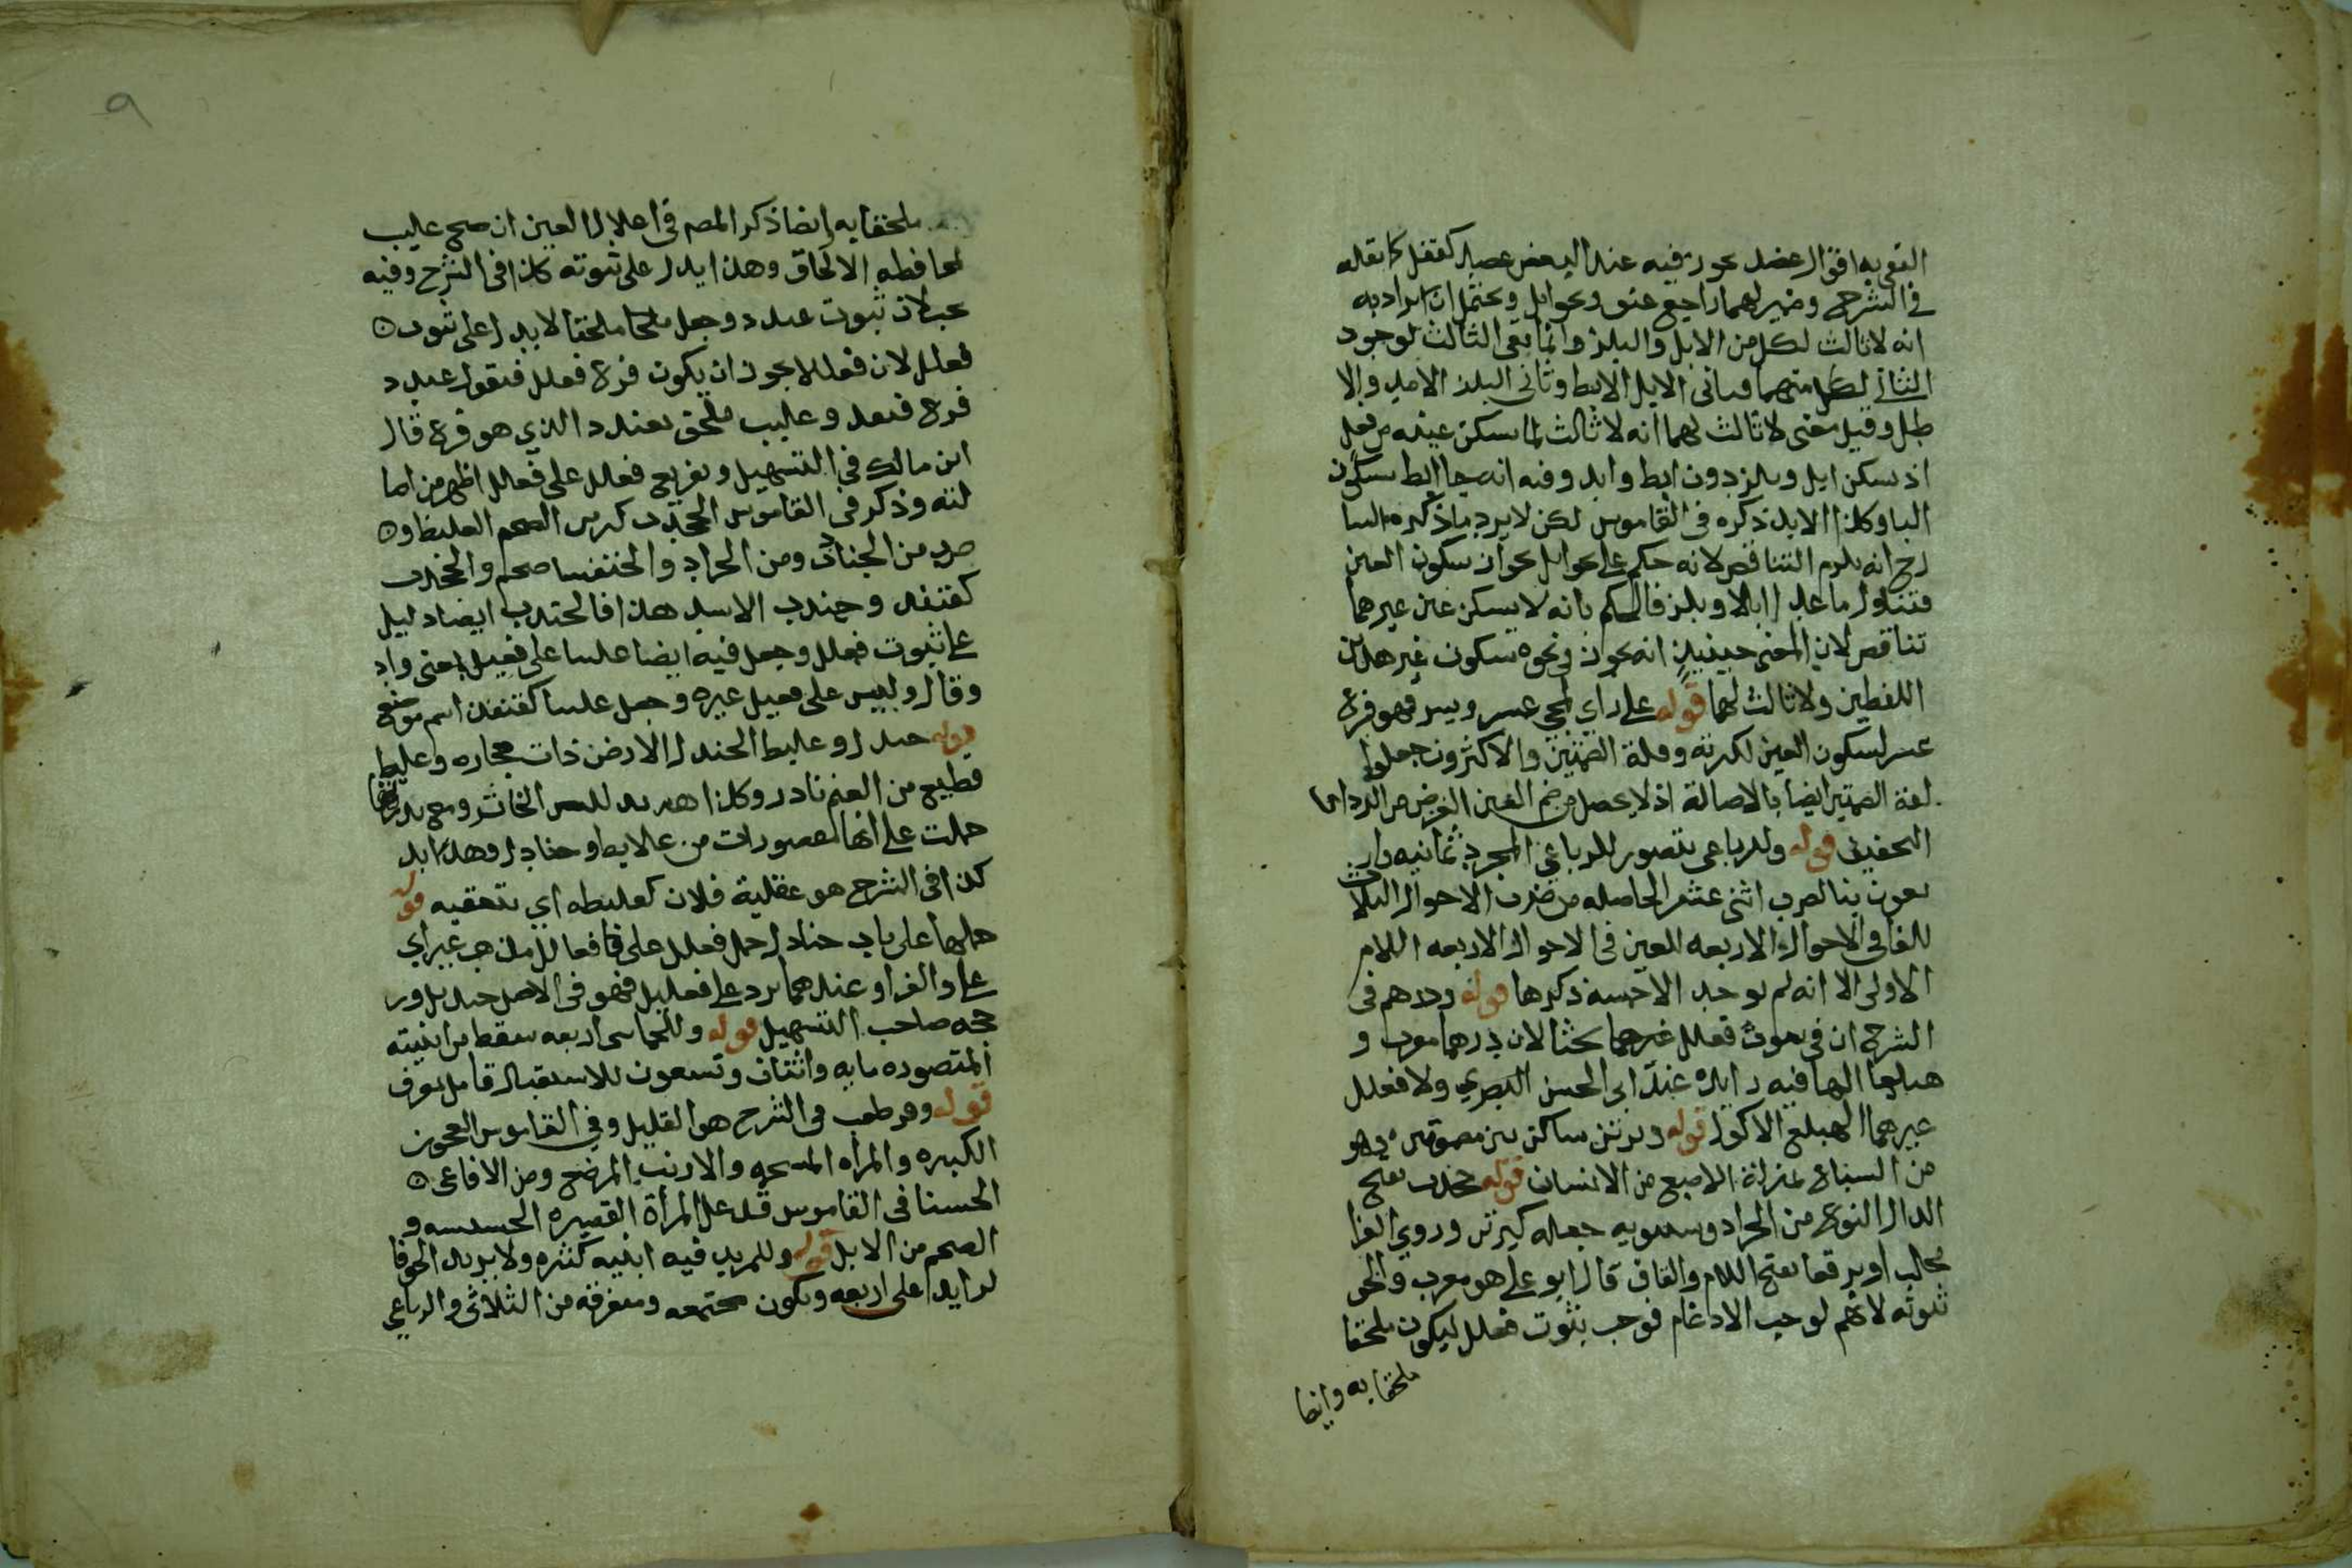 في الشرح وضمير لهما راجع عنق ونحو ابل ويحتمل ان يراد به
انه لا ثالث لكل من الابل والبلز وانما نفى الثالث لوجود
الثاني لكل منهما فثاني الابل الابط وثاني البلز الابد والا
طل وقيل معنى لا ثالث لهما انه لا ثالث لما يسكن عينه من فعل
اذ يسكن ابل وبلز دون ابط وابد وفيه انه جا ابط بسكون
البا وكذا الابد ذكره في القاموس لكن لا يرد ما ذكره الشا
رح انه يلزم التناقض لانه حكم على نحو ابل بجواز سكون العين
فتناول ما عدا ابلا وبلز فالحكم بانه لا يسكن عين غيرهما
تناقض لان المعنى حينيذ انه يجوز في نحوه سكون غير هذين
اللفظين ولا ثالث لهما قوله على راي لمجي عسر ويسر فهو فرع
عسر لسكون العين لكثرته وقلة الضمتين والاكثرون جعلوا
لغة الضمتين ايضا بالاصالة اذ لا يحصل من ضم العين الغرض من الرد اعنى
التخفيف قوله وللرباعي يتصور للرباعي المجرد ثمانيه وار
بعون بنا لضرب اثنى عشر الحاصله من ضرب الاحوال الثلاث
للفا في الاحوال الاربعه للعين في الاحوال الاربعه اللام
الاولى الا انه لم يوجد الا خمسه ذكرها قوله ودرهم في
الشرح ان في ثبوت فعلل غيرهما بحثا لان درهما معرب و
هبلعا الها فيه زايده عند ابي الحسن البصري ولا فعلل
غيرهما الهبلع الاكول قوله وبرثن ساكن بين مضمومتين وهو
من السباع بمنزلة الاصبع من الانسان قوله جخدب بفتح
الدال النوع من الجراد وسيبويه جعله كبرثن وروي الفرا
طحلب او برقعا بفتح اللام والقاف قال ابو علي هو معرب والحق
ثبوته لانهم لوجب الادغام فوجب ثبوت فعلل ليكون ملحقا
ملحقا به وايضا
٩
ملحقا به وايضا ذكر المص في اعلال العين ان صح عليب
لمحافظه الالحاق وهذا يدل على ثبوته كذا في الشرح وفيه
بحث لان ثبوت عندد وجعل ملحقا لا يدل على ثبوت
فعلل لان فعلل لا يجوز ان يكون فرع فعلل فنقول عندد
فرع قنفد وعليب ملحق بعندد الذي هو فرع قال
ابن مالك في التسهيل وتفريع فعلل على فعلل اظهر من اصا
لته وذكر في القاموس الجخدب كبرثن الضخم الغليظ و
ضرب من الجنادب ومن الجراد والخنفسا ضخم والجخدب
كقنفد وجندب الاسد هذا فالجخدب ايضا دليل
على ثبوت فعلل وجعل فيه ايضا عليبا على فعيل بمعنى واد
وقال وليس على فعيل غيره وجعل عليبا كقنفد اسم موضع
قوله جندل وعلبط الجندل الارض ذات حجاره وعلبط
قطيع من الغنم نادر وكذا هدبد للبن الخاثر
حملت على انها مقصورات من علابط وجنادل وهدابد
كذا في الشرح هو عقلية فلان كعلبطه اي بتحقيه قوله
حملها على باب جنادل حمل فعلل على فعالل مذهب غير ابي
علي والفرا وعندهما يرد على فعليل فهو في الاصل جنديل ور
جحه صاحب التسهيل قوله وللخماسي اربعه سقط من ابنيته
المتصوره مايه واثنتان وتسعون للاستقبال قامل تعرف
قوله وقرطعب في الشرح هو القليل وفي القاموس العجوز
الكبيره والمراه السمجه والارنب المرضع ومن الافاعي
الخشنا في القاموس قذعمل المرأة القصيره الخسيسه و
الضخم من الابل قوله وللمزيد فيه ابنيه كثيره ولا يزيد الحرف
لزايد على اربعه وتكون مجتمعه ومتفرقه من الثلاثي والرباعي